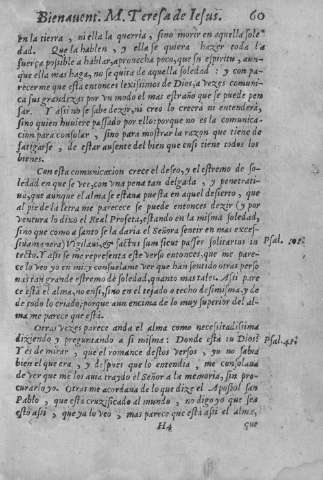 Bienauent. M. Teresa de Iesus. 60
en la tierra, ni ella la querria, sino morir en aquella sole
dad. Que la hablen, y ella se quiera hazer toda la
fuerça possible a hablar, aprouecha poco, que su espiritu, aun-
que ella mas haga, no se quita de aquella soledad: y con pa-
recerme que està entonces lexissimos de Dios, a vezes comuni-
ca sus grandezas por vn modo el mas estraño que se puede pen
sar. Y assi no se sabe dezir, ni creo lo creerà ni entenderà,
sino quien huuiere passado por ello: porque no es la comunica-
cion para consolar, sino para mostrar la razon que tiene de
fatigarse, de estar ausente del bien que en si tiene todos los
bienes.
Con esta comunicacion crece el desseo, y el estremo de so-
ledad en que se vee, con vna pena tan delgada, y penetrati-
ua, que aunque el alma se estaua puesta en aquel desierto, que
al pie de la letra me parece se puede entonces dezir (y por
ventura lo dixo el Real Profeta, estando en la misma soledad,
sino que como a santo se la daria el Señor a sentir en mas exces-
siua manera) Vigilaui, & factus sum sicut passer solitarius in
tecto. Y assi se me representa este verso entonces, que me pare-
ce lo veo yo en mi: y consuelame ver que han sentido otras perso-
nas tan grande estremo de soledad, quanto mas tales. Assi pare
ce està el alma, no en si, sino en el tejado o techo de si misma, y de
de todo lo criado; porque aun encima de lo muy superior del al-
ma me parece que està.
Psal. 101.
Otras vezes parece anda el alma como necessitadissima
diziendo y preguntando a si misma: Donde està tu Dios?
Y es de mirar, que el romance destos versos, yo no sabia
bien el que era, y despues que lo entendia, me consolaua
de ver que me los auia traydo el Señor a la memoria, sin pro-
curarlo yo. Otras me acordaua de lo que dize el Apostol san
Pablo, que està cruzificado al mundo, no digo yo que sea
esto assi, que ya lo veo, mas parece que està assi el alma,
Psal. 41.
H4 que